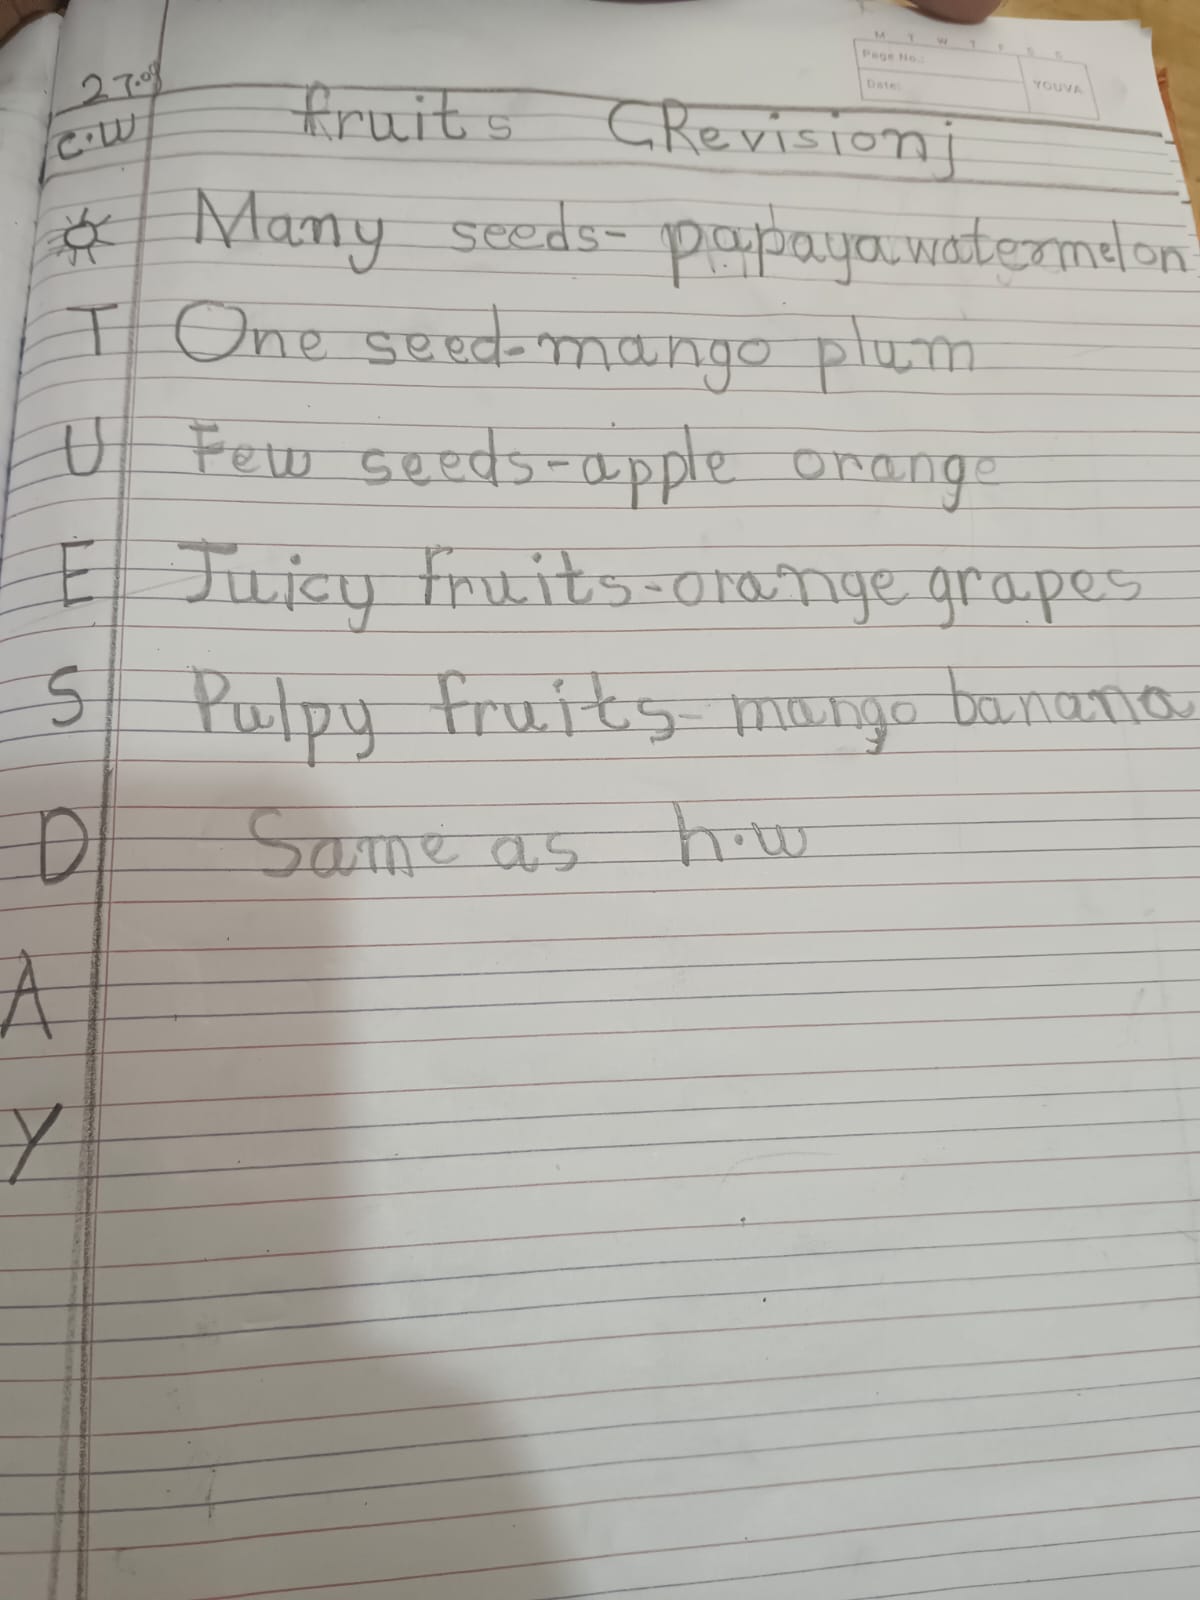 M T W T F S S
Page No.:
Date:
YOUVA
27.09
C.W fruits (Revision)
Many seeds- papaya watermelon
T One seed-mango plum
U Few seeds-apple orange
E Juicy fruits-orange grapes
S Pulpy fruits- mango banana
D Same as h.w
A
Y